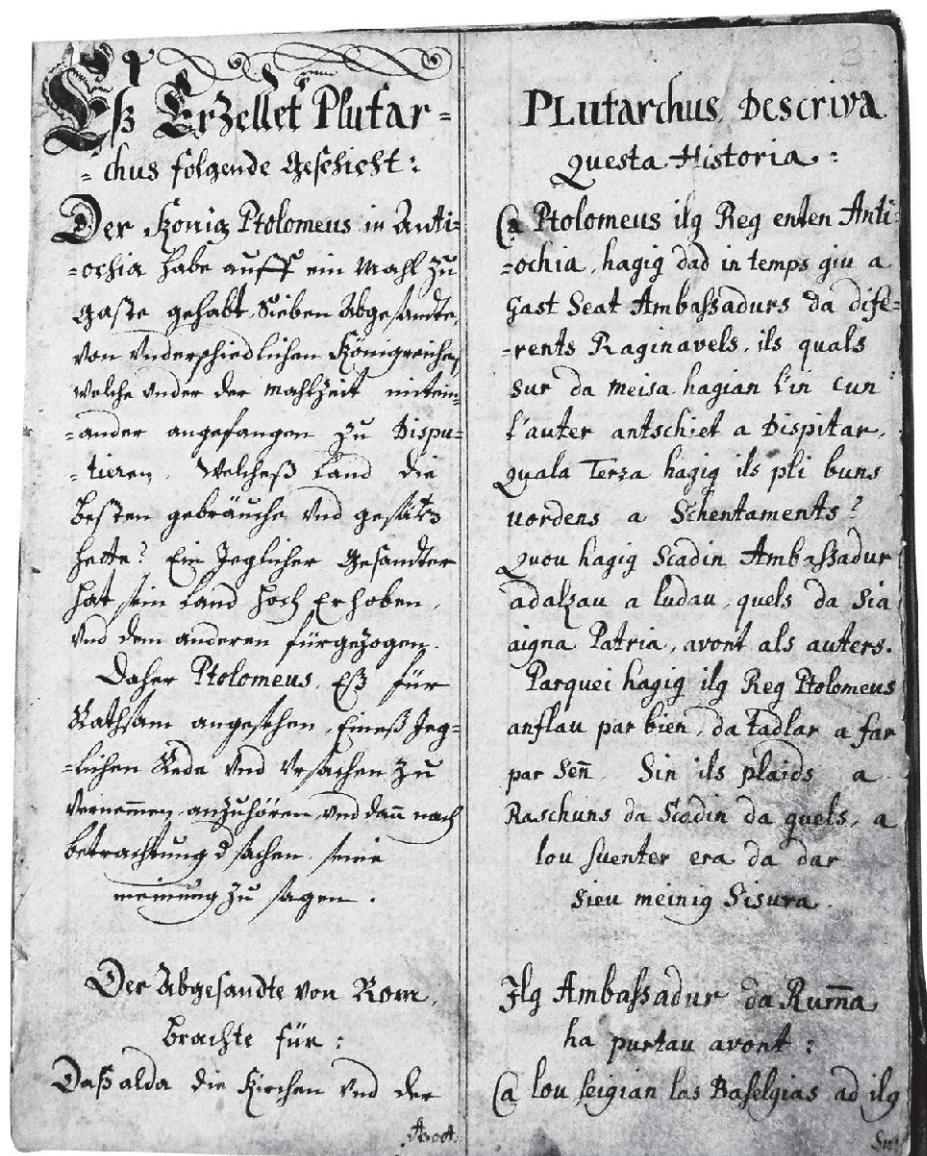 Eß Erzellet Plutar=
=chus folgende Geschicht:
Der König Ptolomeus in Anti=
=ochia habe auff ein Mahl zu
Gaste gehabt, Sieben Abgesandte,
von Underschiedlichen Königreichen,
welche under der Mahlzeit mitein=
=ander angefangen zu Dispu=
=tieren, Welcheß Land die
besten gebräuche und gesätz
hette? Ein Jeglicher Gesandter
hat sein Land hoch Erhoben,
und dem anderen fürgezogen.
Daher Ptolomeus, Eß für
Rathsam angesehen, Eineß Jeg=
=lichen Rede und Ursachen zu
Vernemmen, anzuhören, und dañ nach
betrachtung d sachen, seine
meinung zu sagen.
Der Abgesandte von Rom,
brachte für:
Daß alda die Kirchen und der
PLutarchus, Descriva
Questa Historia:
Ca Ptolomeus ilg Reg enten Anti=
=ochia, hagig dad in temps giu a
Gast Seat Ambaßadurs da dife=
=rents Raginavels, ils quals
sur da meisa hagian l'in cun
l'auter antschiet a Dispitar,
Quala Terra hagig ils pli buns
uordens a Schentaments?
Quou hagig Scadin Ambaßadur
adalzau a ludau, quels da Sia
aigna Patria, avont als auters.
Parquei hagig ilg Reg Ptolomeus
anflau par bien, da tadlar a far
par señ. Sin ils plaids a
Raschuns da Scadin da quels, a
lou suenter era da dar
sieu meinig Sisura.
Ilg Ambaßadur da Rum̃a
ha purtau avont:
Ca lou seigian las Baselgias ad ilg